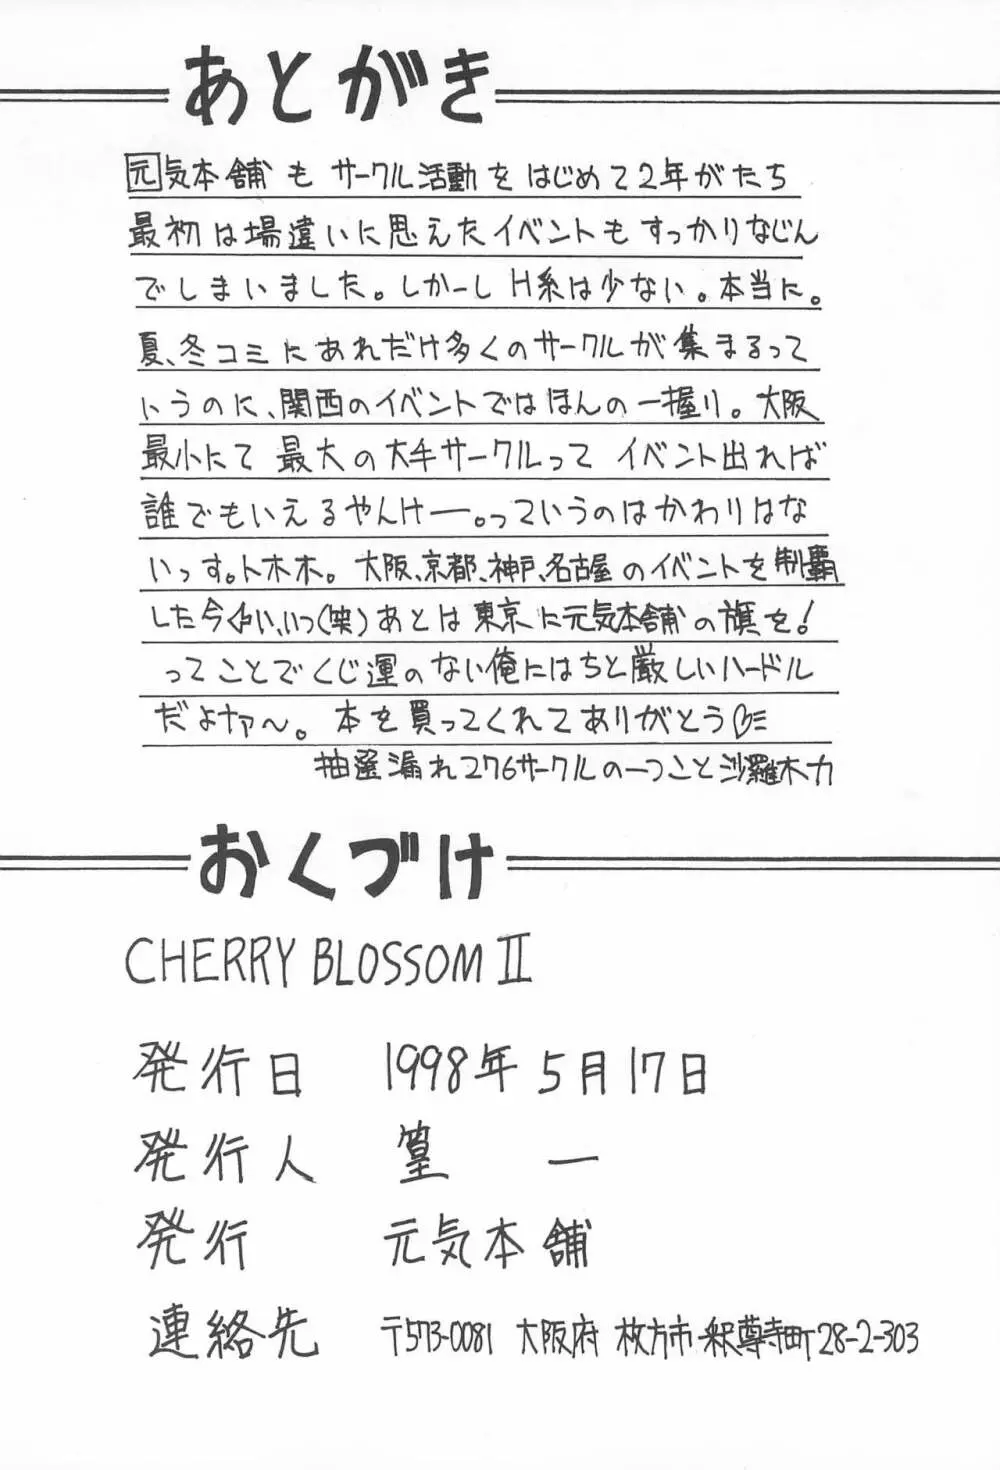 あとがき
元気本舗も サークル活動をはじめて2年がたち
最初は場違いに思えたイベントもすっかりなじん
でしまいました。しかーしH系は少ない。本当に。
夏、冬コミにあれだけ多くのサークルが集まるって
いうのに、関西のイベントではほんの一握り。大阪
最小にて最大の大手サークルって イベント出れば
誰でもいえるやんけー。っていうのはかわりはな
いっす。トホホ。大阪、京都、神戸、名古屋のイベントを制覇
した今(笑)あとは東京に元気本舗の旗を!
ってことでくじ運のない俺にはちと厳しいハードル
だよナァ〜。本を買ってくれてありがとう
抽選漏れ276サークルの一つこと沙羅木力
おくづけ
CHERRY BLOSSOM II
発行日 1998年5月17日
発行人 篁 一
発行 元気本舗
連絡先 〒573-0081 大阪府 枚方市釈尊寺町28-2-303